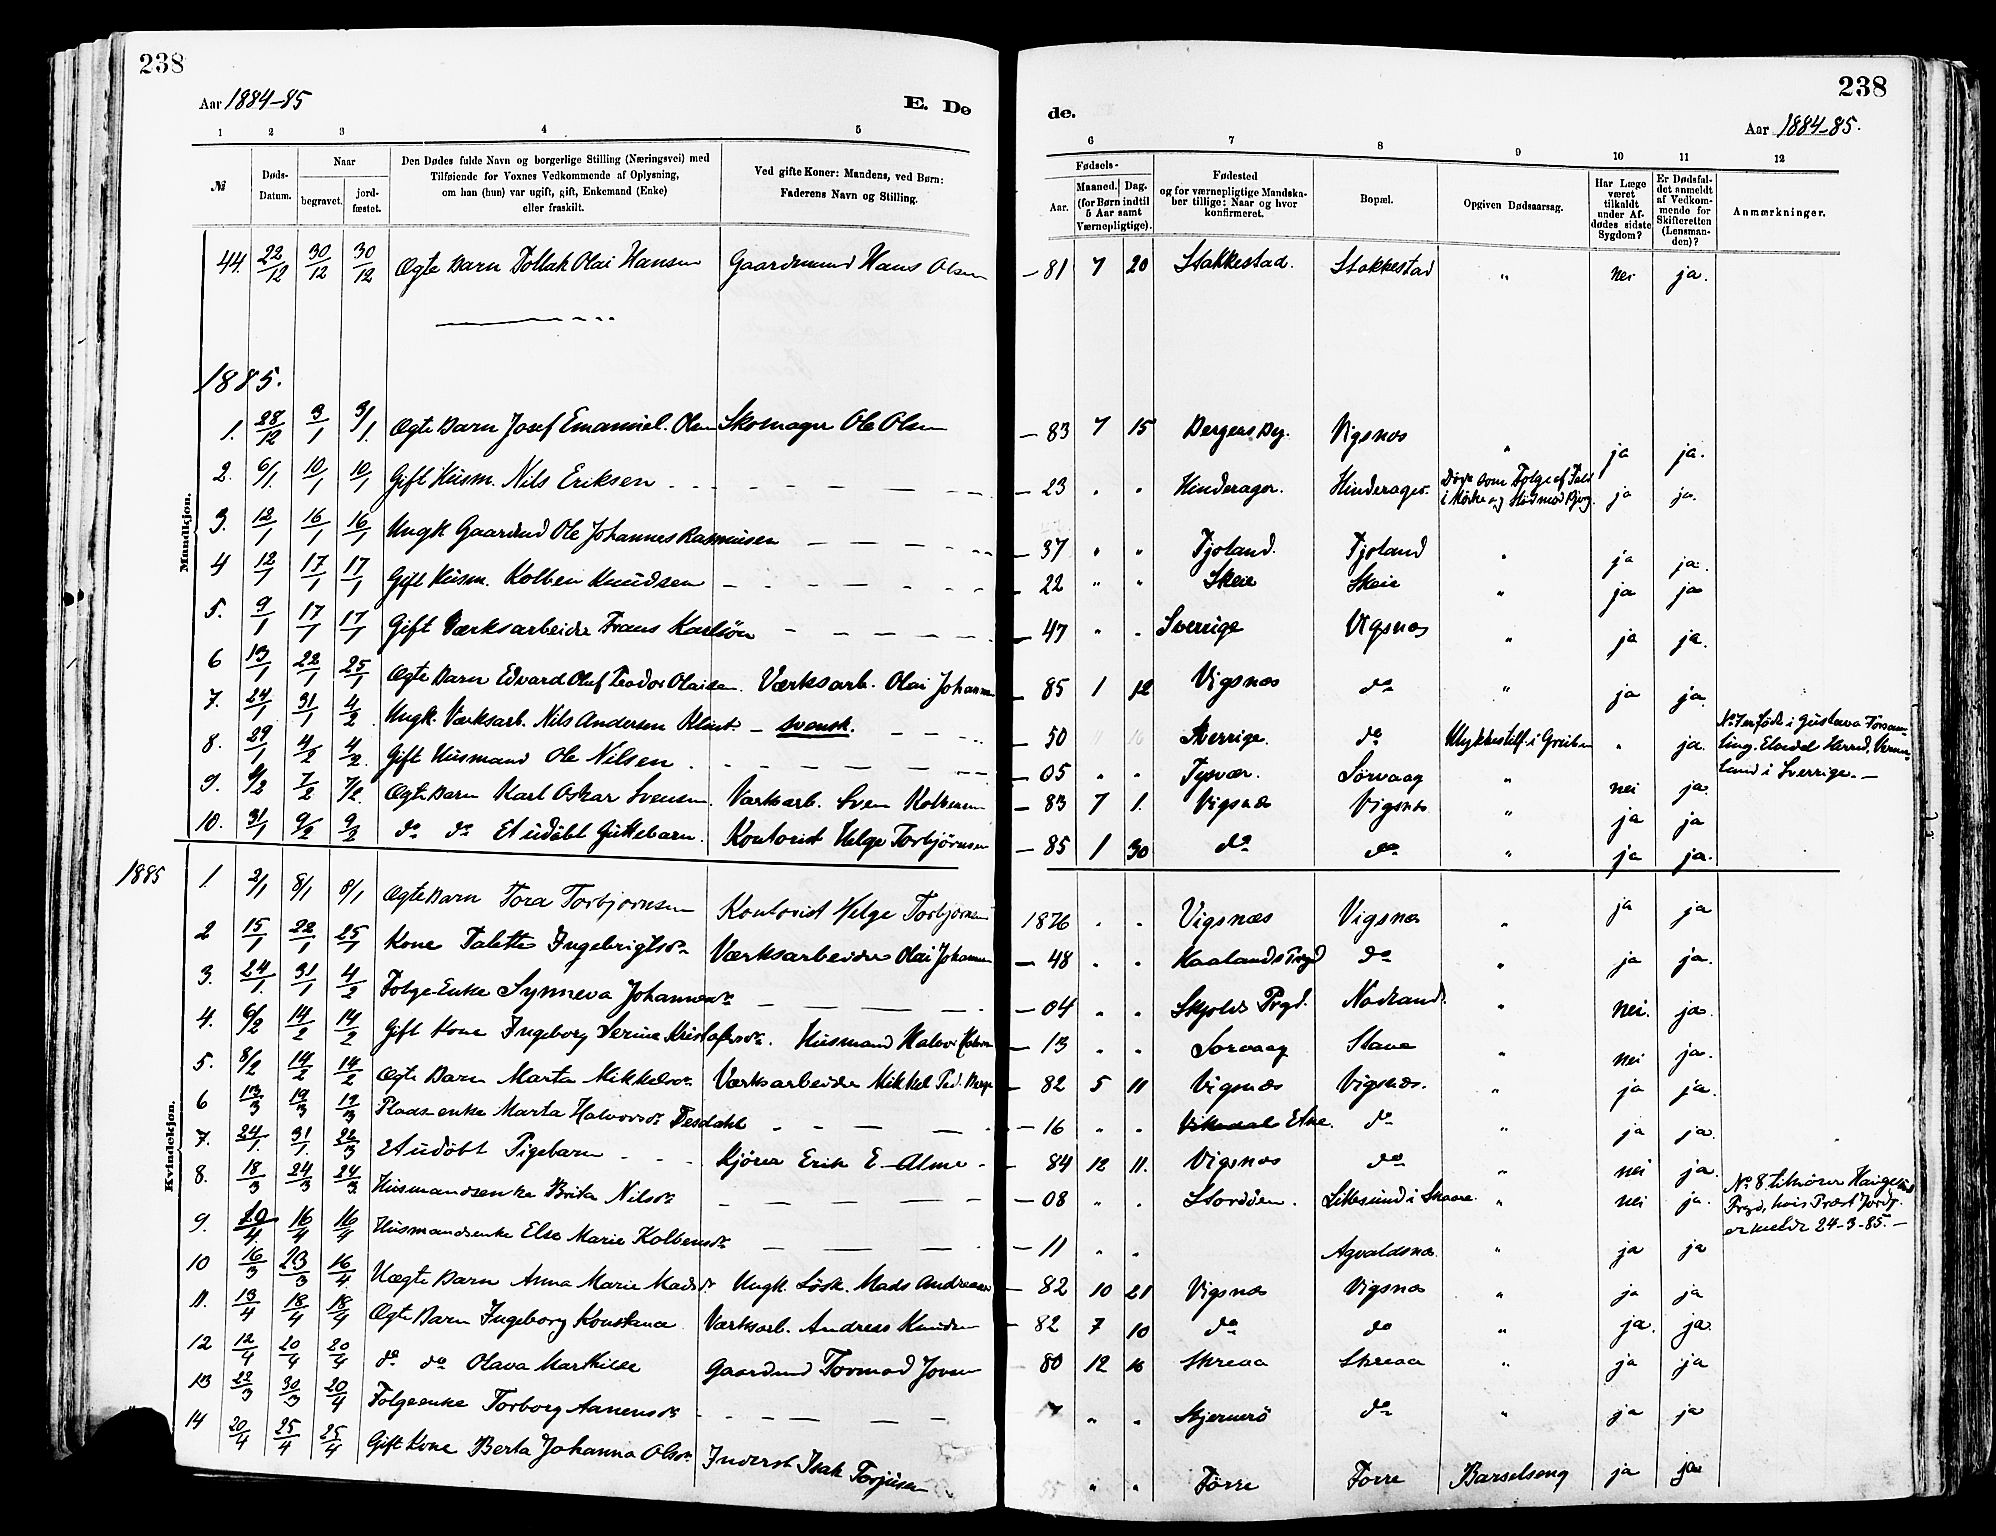 238
Aar 1884-85
E. De
1 2 3 4 5
№
Døds-Datum.
Naar
begravet.
jord-fæstet.
Den Dødes fulde Navn og borgerlige Stilling (Næringsvei) med
Tilføiende for Voxnes Vedkommende af Oplysning,
om han (hun) var ugift, gift, Enkemand (Enke)
eller fraskilt.
Ved gifte Koner: Mandens, ved Børn:
Faderens Navn og Stilling.
de.
238
Aar 1884-85.
6 7 8 9 10 11 12
Fødsels-
Aar.
Maaned. Dag.
(for Børn indtil
5 Aar samt
Værnepligtige).
Fødested
og for værnepligtige Mandska-
ber tillige: Naar og hvor
konfirmeret.
Bopæl.
Opgiven Dødsaarsag.
Har Læge
været
tilkaldt
under Af-
dødes sidste
Sygdom?
Er Dødsfal-
det anmeldt
af Vedkom-
mende for
Skifteretten
(Lensman-
den)?
Anmærkninger.
44. 22/12 30/12 30/12 Ægte Barn Tollak Olai Hansen Gaardmand Hans Olsen — 81 7 20 Stakkestad. Stakkestad " nei ja.
1885.
Mandkjøn.
1. 28/12 3/1 3/1. Ægte Barn Josef Emanuel Olsen Skomager Ole Olsen — 83 7 15 Bergens By. Vigsnæs " ja ja.
2. 6/1. 10/1 10/1 Gift Husm. Nils Eriksen — 23 " " Hinderager. Hinderager. Døde som Følge af Fald ja ja.
i Mørke og Stød mod Bjerg.
3. 12/1 16/1 16/1 Ungk Gaardmd Ole Johannes Rasmusen — 37 " " Fjoland. Fjoland " ja ja.
4 12/1 17/1 17/1 Gift Husm. Kolben Knudsen — 22 " " Skeie Skeie " ja ja
5. 9/1 17/1 17/1 Gift Værksarbeider Frans Karlsön — 47 " " Sverrige Vigsnæs " ja ja.
6 13/1 22/1 25/1 Ægte Barn Edvard Oluf Teodor Olaisen. Værksarb. Olai Johannes — 85 1 12 Vigsnæs do " ja ja.
7. 24/1 31/1 4/2 Ungk. Værksarb. Nils Andersen Klint — svensk. — 50 Sverrige. do Ulykkestilf. i Gruben " ja.
No 7 er født i Gustava Forsam-
ling, Elvedal Herred, Verm-
land i Sverrige. —
8. 29/1 4/2 4/2. Gift Husmand Ole Nilsen — 05 " " Tysvær. Sørvaag " nei ja.
9. 6/2 7/2 7/2. Ægte Barn Karl Oskar Svensen. Værksarb. Sven — 83 7 1. Vigsnæs Vigsnæs " ja ja
10. 31/1 9/2 9/2 do do Et udöbt Guttebarn. Kontorist Helge Torbjörnsen — 85 1 30 do do " ja ja.
1885
Kvindekjøn.
1. 2/1 8/1 8/1 Ægte Barn Tora Torbjornsen Kontorist Helge Torbjornsen 1876 " " Vigsnæs Vigsnæs " ja ja
2 15/1 22/1 25/1 Kone Talette Ingebrigtsdr Værksarbeider Olai Johannes — 48 " " Kaalands Prgd do " ja ja.
3. 24/1. 31/1 4/2 Folge-Enke Synneva Johannesdr — 04 " " Skjolds Prgd. " nei. ja.
4. 6/2 14/2 14/2 Gift Kone Ingeborg Serine Kristofersdr. Husmand Halvor — 13 " " Sorvaag Stave " nei ja.
5. 8/2 14/2 14/2 Ægte Barn Marta Mikkelsdr Værksarbeider Mikkel Ped. Berge — 82 5 11 Vigsnæs Vigsnæs. " ja ja.
6 13/3 19/3 19/3 Plads-enke Marta Halvorsdr — 16 " " Etne. do " ja ja.
7. 24/1. 31/1. 22/3 Et udöbt Pigebarn Kjörer Erik E. Alme — 84 12 11. Vigsnæs do " nei ja.
8. 18/3 24/3 24/3. Husmandsenke Brita Nilsdr — 08 " " Stordöen. " nei ja.
No 8 tilhörer
Prgd, hvis Præst Jordf.
er meldt 24-3-85. —
9. 10/4. 16/4 16/4 Husmandsenke Else Marie Kolbensdr — 11 " " Agvaldsnæs. " ja ja
10 16/3 23/3 16/4 Uægte Barn Anna Marie Madsdr Ungk. Lösk. Mads Andreas — 82 10 21 Vigsnæs Vigsnæs " ja ja
11. 13/4 18/4 18/4 Ægte Barn Ingeborg Konstanse Værksarb. Andreas Knudsen — 82 7 10 do do " ja. ja.
12 12/4 20/4 20/4 do do Olava Marthille Gaardmd Tormod Joversen 80 12 16 Skreaa Skreaa " ja ja
13 22/3 30/3 20/4 Folgeenke Torborg Aanensdr 17 " " Skjernerö do " ja ja
14 20/4 25/4 25/4 Gift Kone Berta Johanna Olsdr. Inderst Isak Torjusen 55 " " Förre Förre Barselseng ja ja